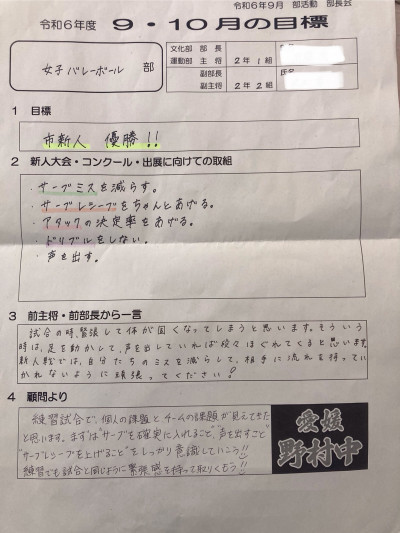 令和6年9月 部活動 部長会
令和6年度 9・10月の目標
女子バレーボール 部
文化部 部長
運動部 主将 2年1組
副部長
副主将 2年2組
氏名
1 目標
市新人 優勝!!
2 新人大会・コンクール・出展に向けての取組
・サーブミスを減らす。
・サーブレシーブをちゃんとあげる。
・アタックの決定率をあげる。
・ドリブルをしない。
・声を出す。
3 前主将・前部長から一言
試合の時、緊張して体が固くなってしまうと思います。そういう
時は、足を動かして、声を出していれば段々ほぐれてくると思います。
新人戦では、自分たちのミスを減らして、相手に流れを持ってい
かれないように頑張ってください!
4 顧問より
練習試合で、個人の課題とチームの課題が見えてきた
と思います。まずは"サーブを確実に入れること"、"声を出すこと"
"サーブレシーブを上げること"をしっかり意識していこう!!
練習でも試合と同じように緊張感を持って取りくもう!!
愛媛
野村中